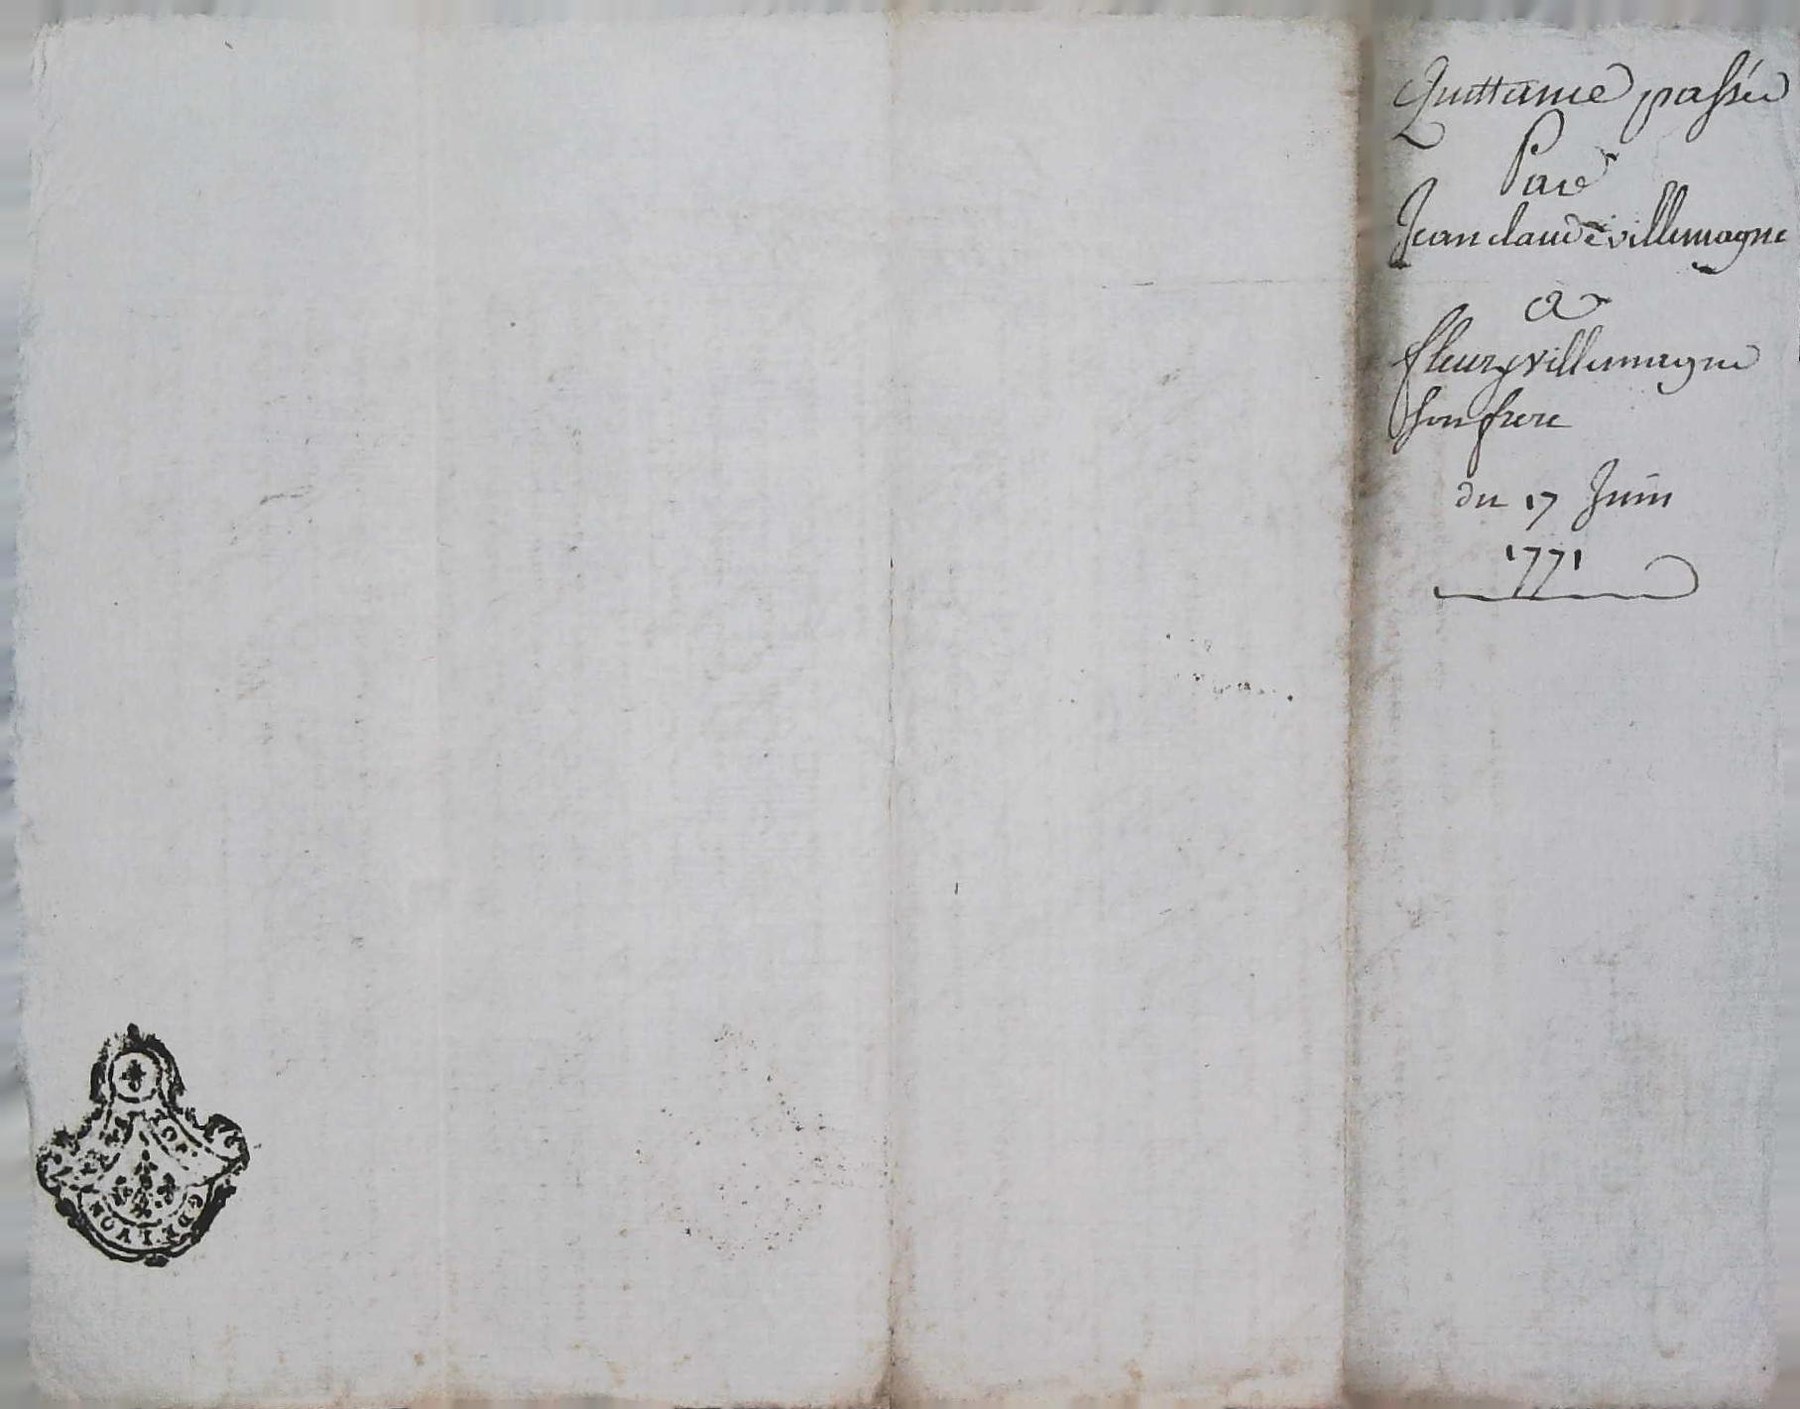 Quittance passée
Par
Jean claude villemagne
a
fleury villemagne
son frere
du 17 Juin
1771
G. DE LYON